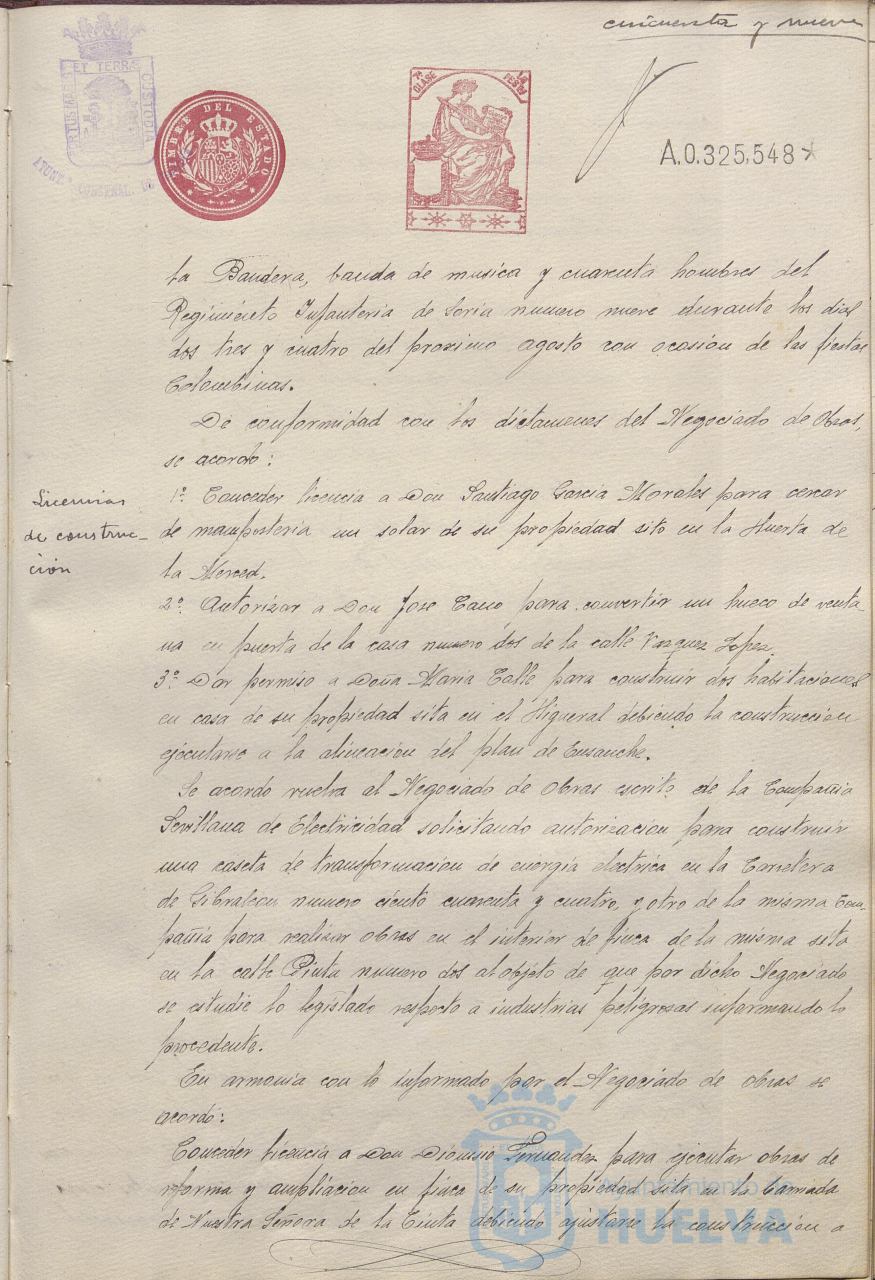 cincuenta y nueve
PORTUS MARIS ET TERRAE CUSTODIA
AYUNT. CONSTNAL.
TIMBRE DEL ESTADO
7ª CLASE
A.0.325,548
la Bandera, banda de musica y cuarenta hombres del
Regimiento Infanteria de Soria numero nueve durante los dias
dos tres y cuatro del proximo agosto con ocasion de las fiestas
Colombinas.
De conformidad con los dictamenes del Negociado de Obras,
se acordo:
Licencias
de construc-
ción
1º Conceder licencia a Don Santiago Garcia Morales para cercar
de mamposteria un solar de su propiedad sito en la Huerta de
la Merced.
2º Autorizar a Don Jose Cano para convertir un hueco de venta-
na en puerta de la casa numero dos de la calle Vazquez Lopez.
3º Dar permiso a Doña Maria Calle para construir dos habitaciones
en casa de su propiedad sita en el Higueral debiendo la construccion
ejecutarse a la alineacion del plan de Ensanche.
Se acordo vuelva al Negociado de Obras escrito de la Compañia
Sevillana de Electricidad solicitando autorizacion para construir
una caseta de transformacion de energia electrica en la Carretera
de Gibraleon numero ciento cuarenta y cuatro, y otro de la misma Com-
pañia para realizar obras en el interior de finca de la misma sita
en la calle Pinta numero dos al objeto de que por dicho Negociado
se estudie lo legislado respecto a industrias peligrosas informando lo
procedente.
En armonia con lo informado por el Negociado de obras se
acordó:
Conceder licencia a Don Dionisio Fernandez para ejecutar obras de
reforma y ampliacion en finca de su propiedad sita en la Barriada
de Nuestra Señora de la Cinta debiendo ajustarse la construccion a
Ayuntamiento de
HUELVA